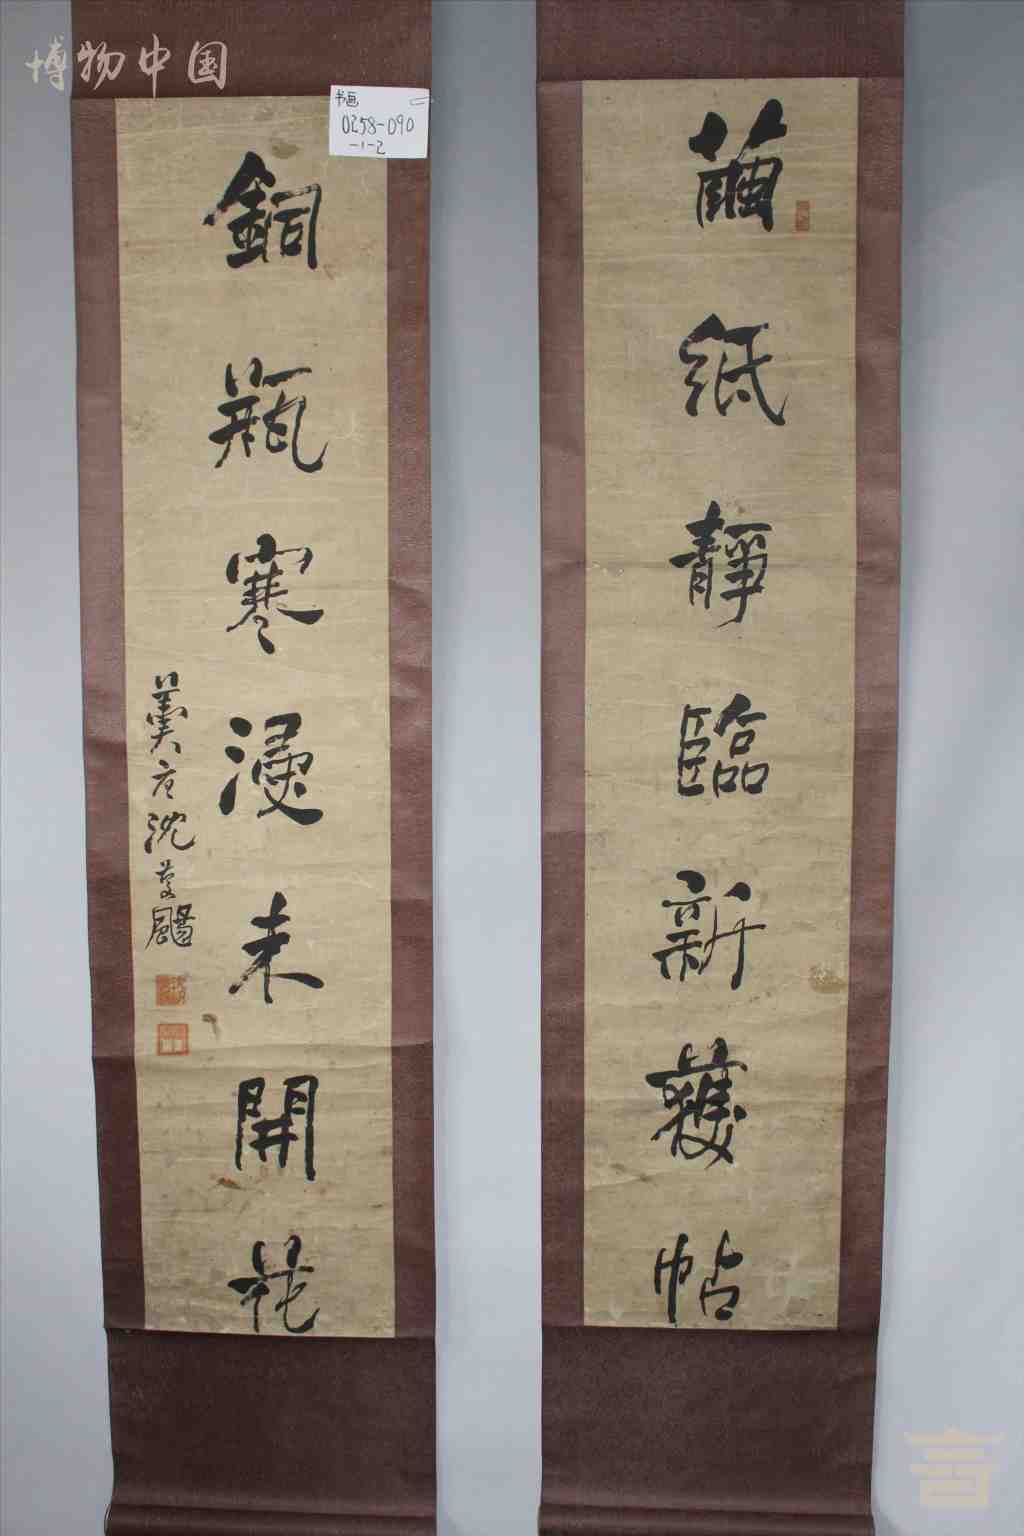 博物中国
书画
0258-090
-1-2
繭紙靜臨新獲帖
銅瓶寒浸未開花